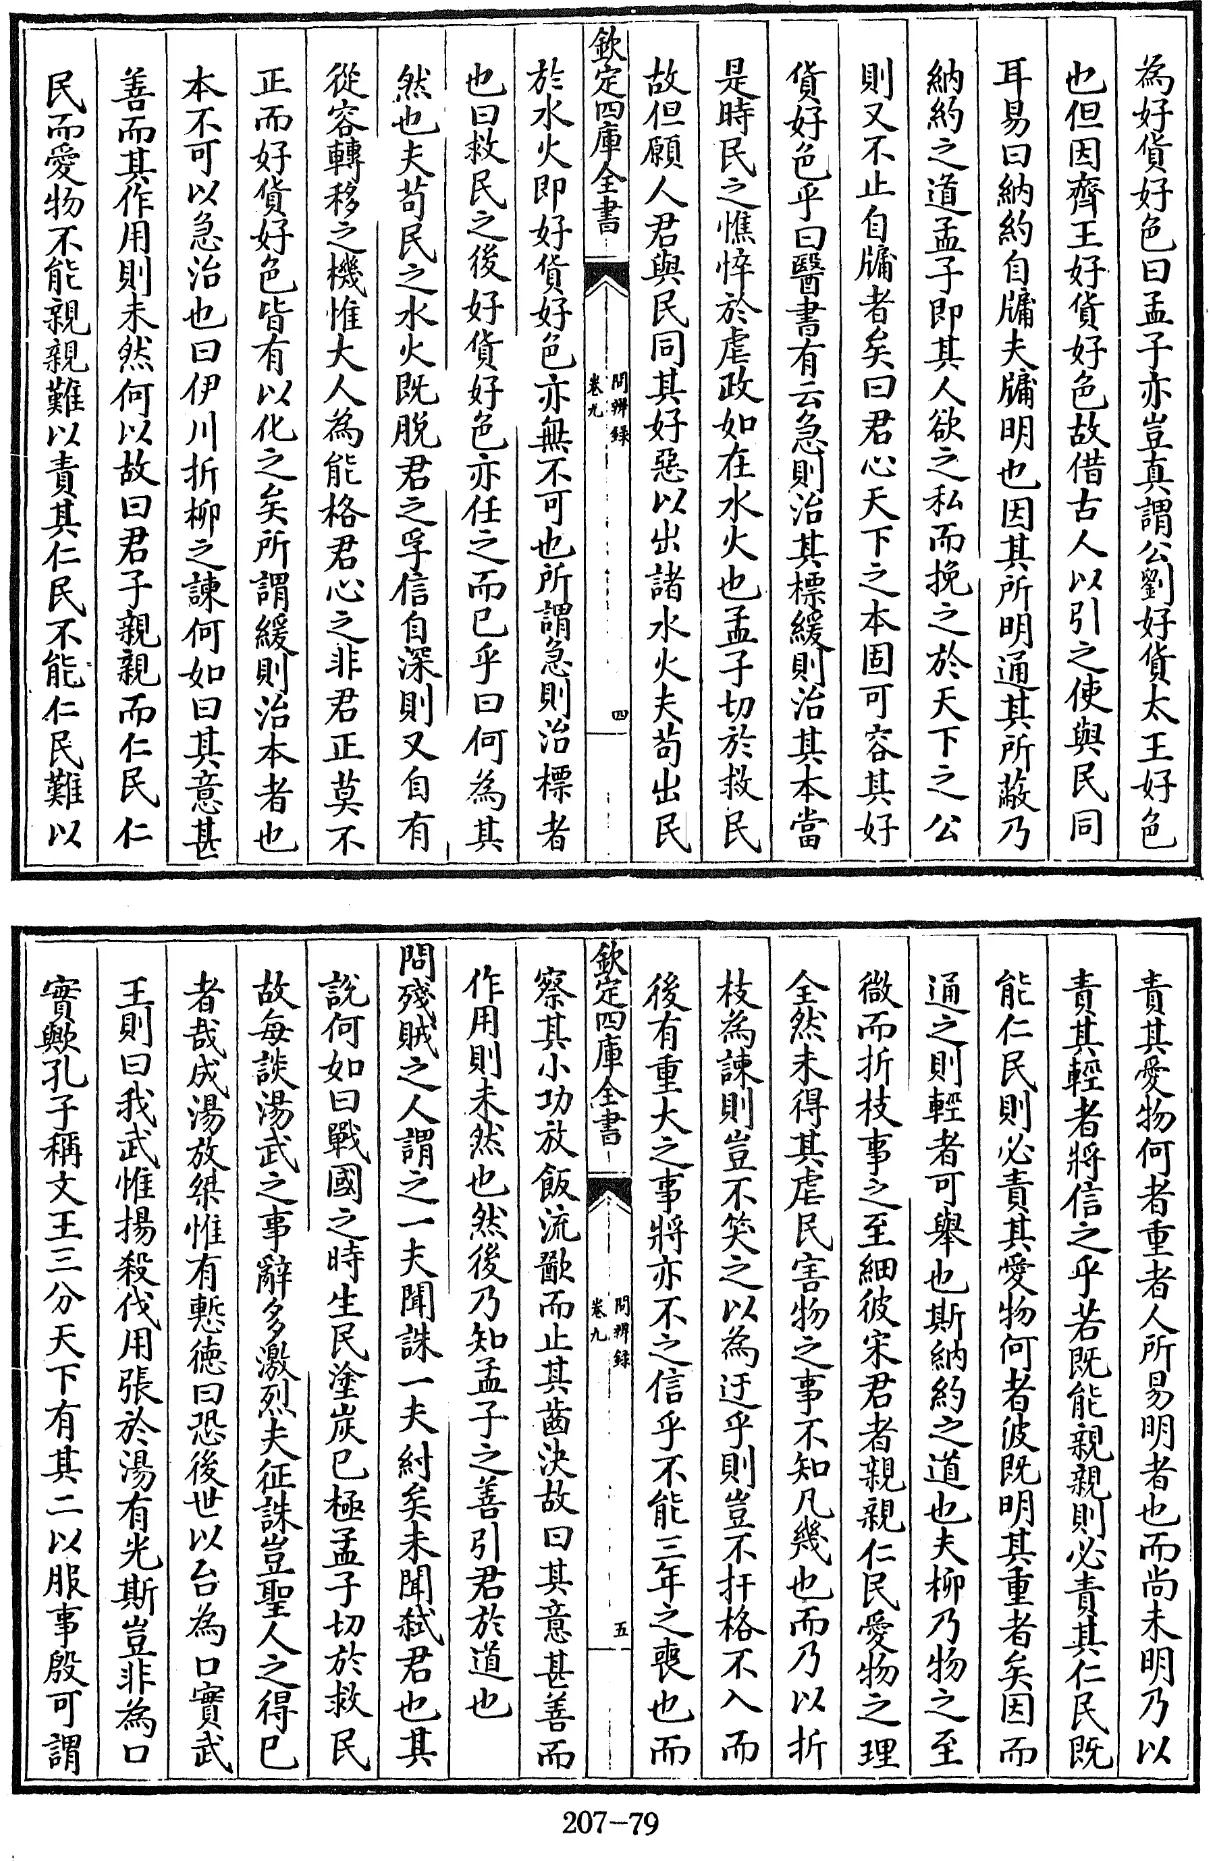 為好貨好色曰孟子亦豈真謂公劉好貨太王好色
也但因齊王好貨好色故借古人以引之使與民同
耳易曰納約自牖夫牖明也因其所明通其所蔽乃
納約之道孟子即其人欲之私而挽之於天下之公
則又不止自牖者矣曰君心天下之本固可容其好
貨好色乎曰醫書有云急則治其標緩則治其本當
是時民之憔悴於虐政如在水火也孟子切於救民
故但願人君與民同其好惡以出諸水火夫苟出民
欽定四庫全書
問辨錄
卷九
四
於水火即好貨好色亦無不可也所謂急則治標者
也曰救民之後好貨好色亦任之而已乎曰何為其
然也夫苟民之水火既脫君之孚信自深則又自有
從容轉移之機惟大人為能格君心之非君正莫不
正而好貨好色皆有以化之矣所謂緩則治本者也
本不可以急治也曰伊川折柳之諫何如曰其意甚
善而其作用則未然何以故曰君子親親而仁民仁
民而愛物不能親親難以責其仁民不能仁民難以
責其愛物何者重者人所易明者也而尚未明乃以
責其輕者將信之乎若既能親親則必責其仁民既
能仁民則必責其愛物何者彼既明其重者矣因而
通之則輕者可舉也斯納約之道也夫柳乃物之至
微而折枝事之至細彼宋君者親親仁民愛物之理
全然未得其虐民害物之事不知凡幾也而乃以折
枝為諫則豈不笑之以為迂乎則豈不扞格不入而
後有重大之事將亦不之信乎不能三年之喪也而
欽定四庫全書
問辨錄
卷九
五
察其小功放飯流歠而止其齒決故曰其意甚善而
作用則未然也然後乃知孟子之善引君於道也
問殘賊之人謂之一夫聞誅一夫紂矣未聞弒君也其
說何如曰戰國之時生民塗炭已極孟子切於救民
故每談湯武之事辭多激烈夫征誅豈聖人之得已
者哉成湯放桀惟有慙德曰恐後世以台為口實武
王則曰我武惟揚殺伐用張於湯有光斯豈非為口
實歟孔子稱文王三分天下有其二以服事殷可謂
207-79